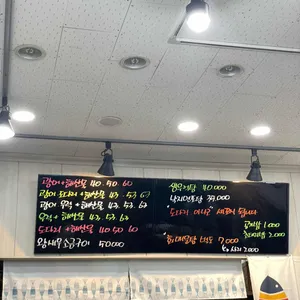 광어 + 해산물 43. 50 60
광어 도다리 + 해산물 43. 53 63
광어 우럭 + 해산물 43. 53. 63
우럭 + 해산물 43. 53. 63
도다리 + 해산물 40 50 60
왕새우 소금구이 50,000
새우매운탕 40,000
39,000
"도다리 세꼬시 됩니다
공기밥 1.000
2.000
7.000
사리 2.000